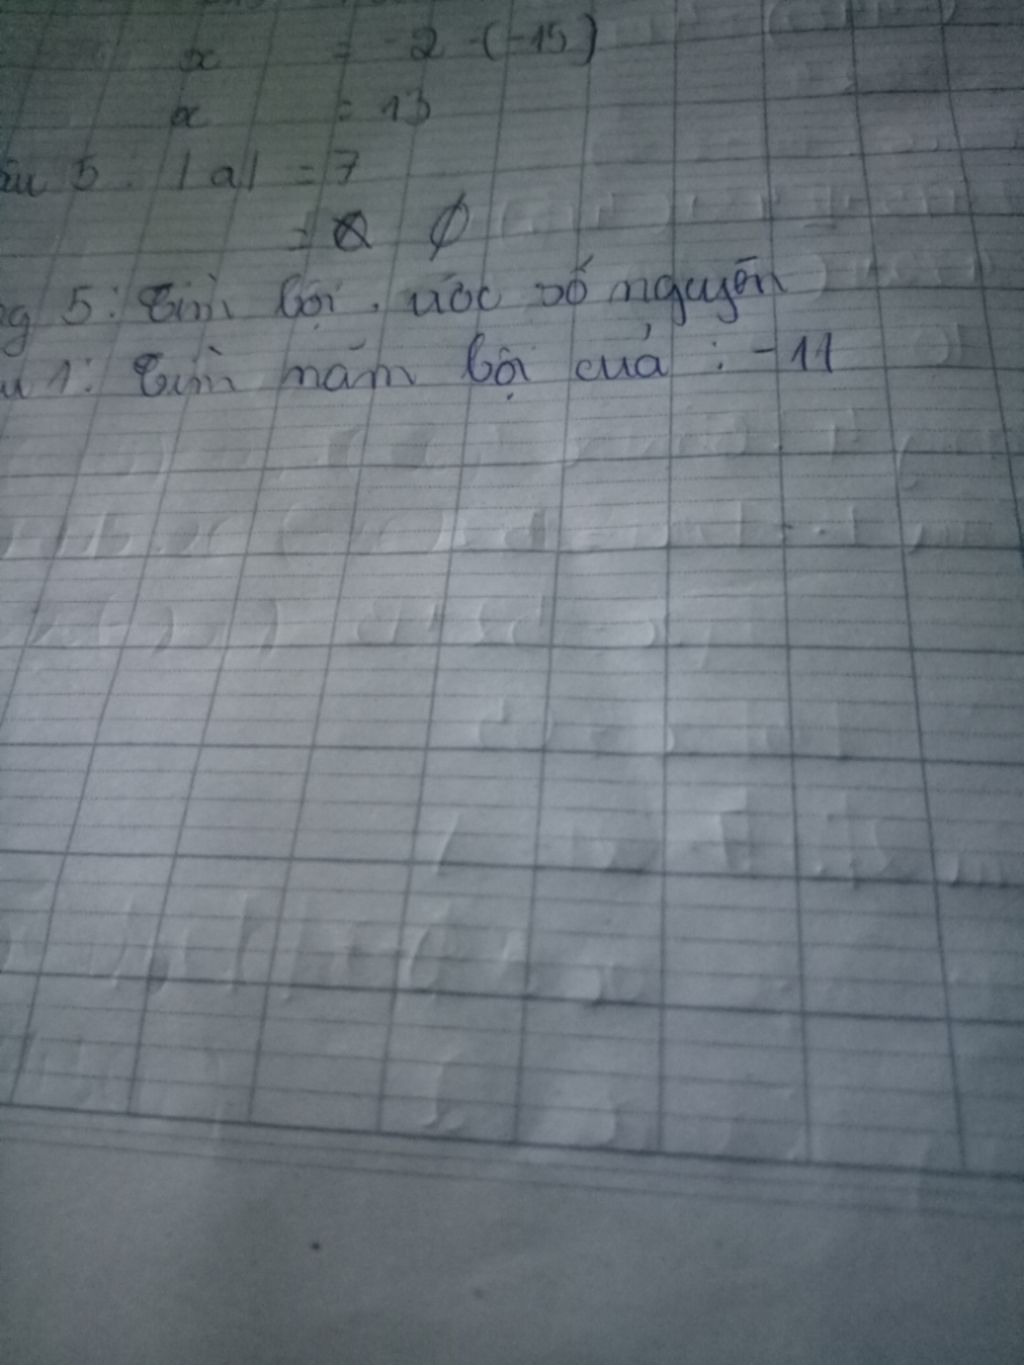 x = -2 -(-15)
x = 13
5. |a| = 7
= ∅
5: Tìm bội, ước số nguyên
1: Tìm năm bội của : -11